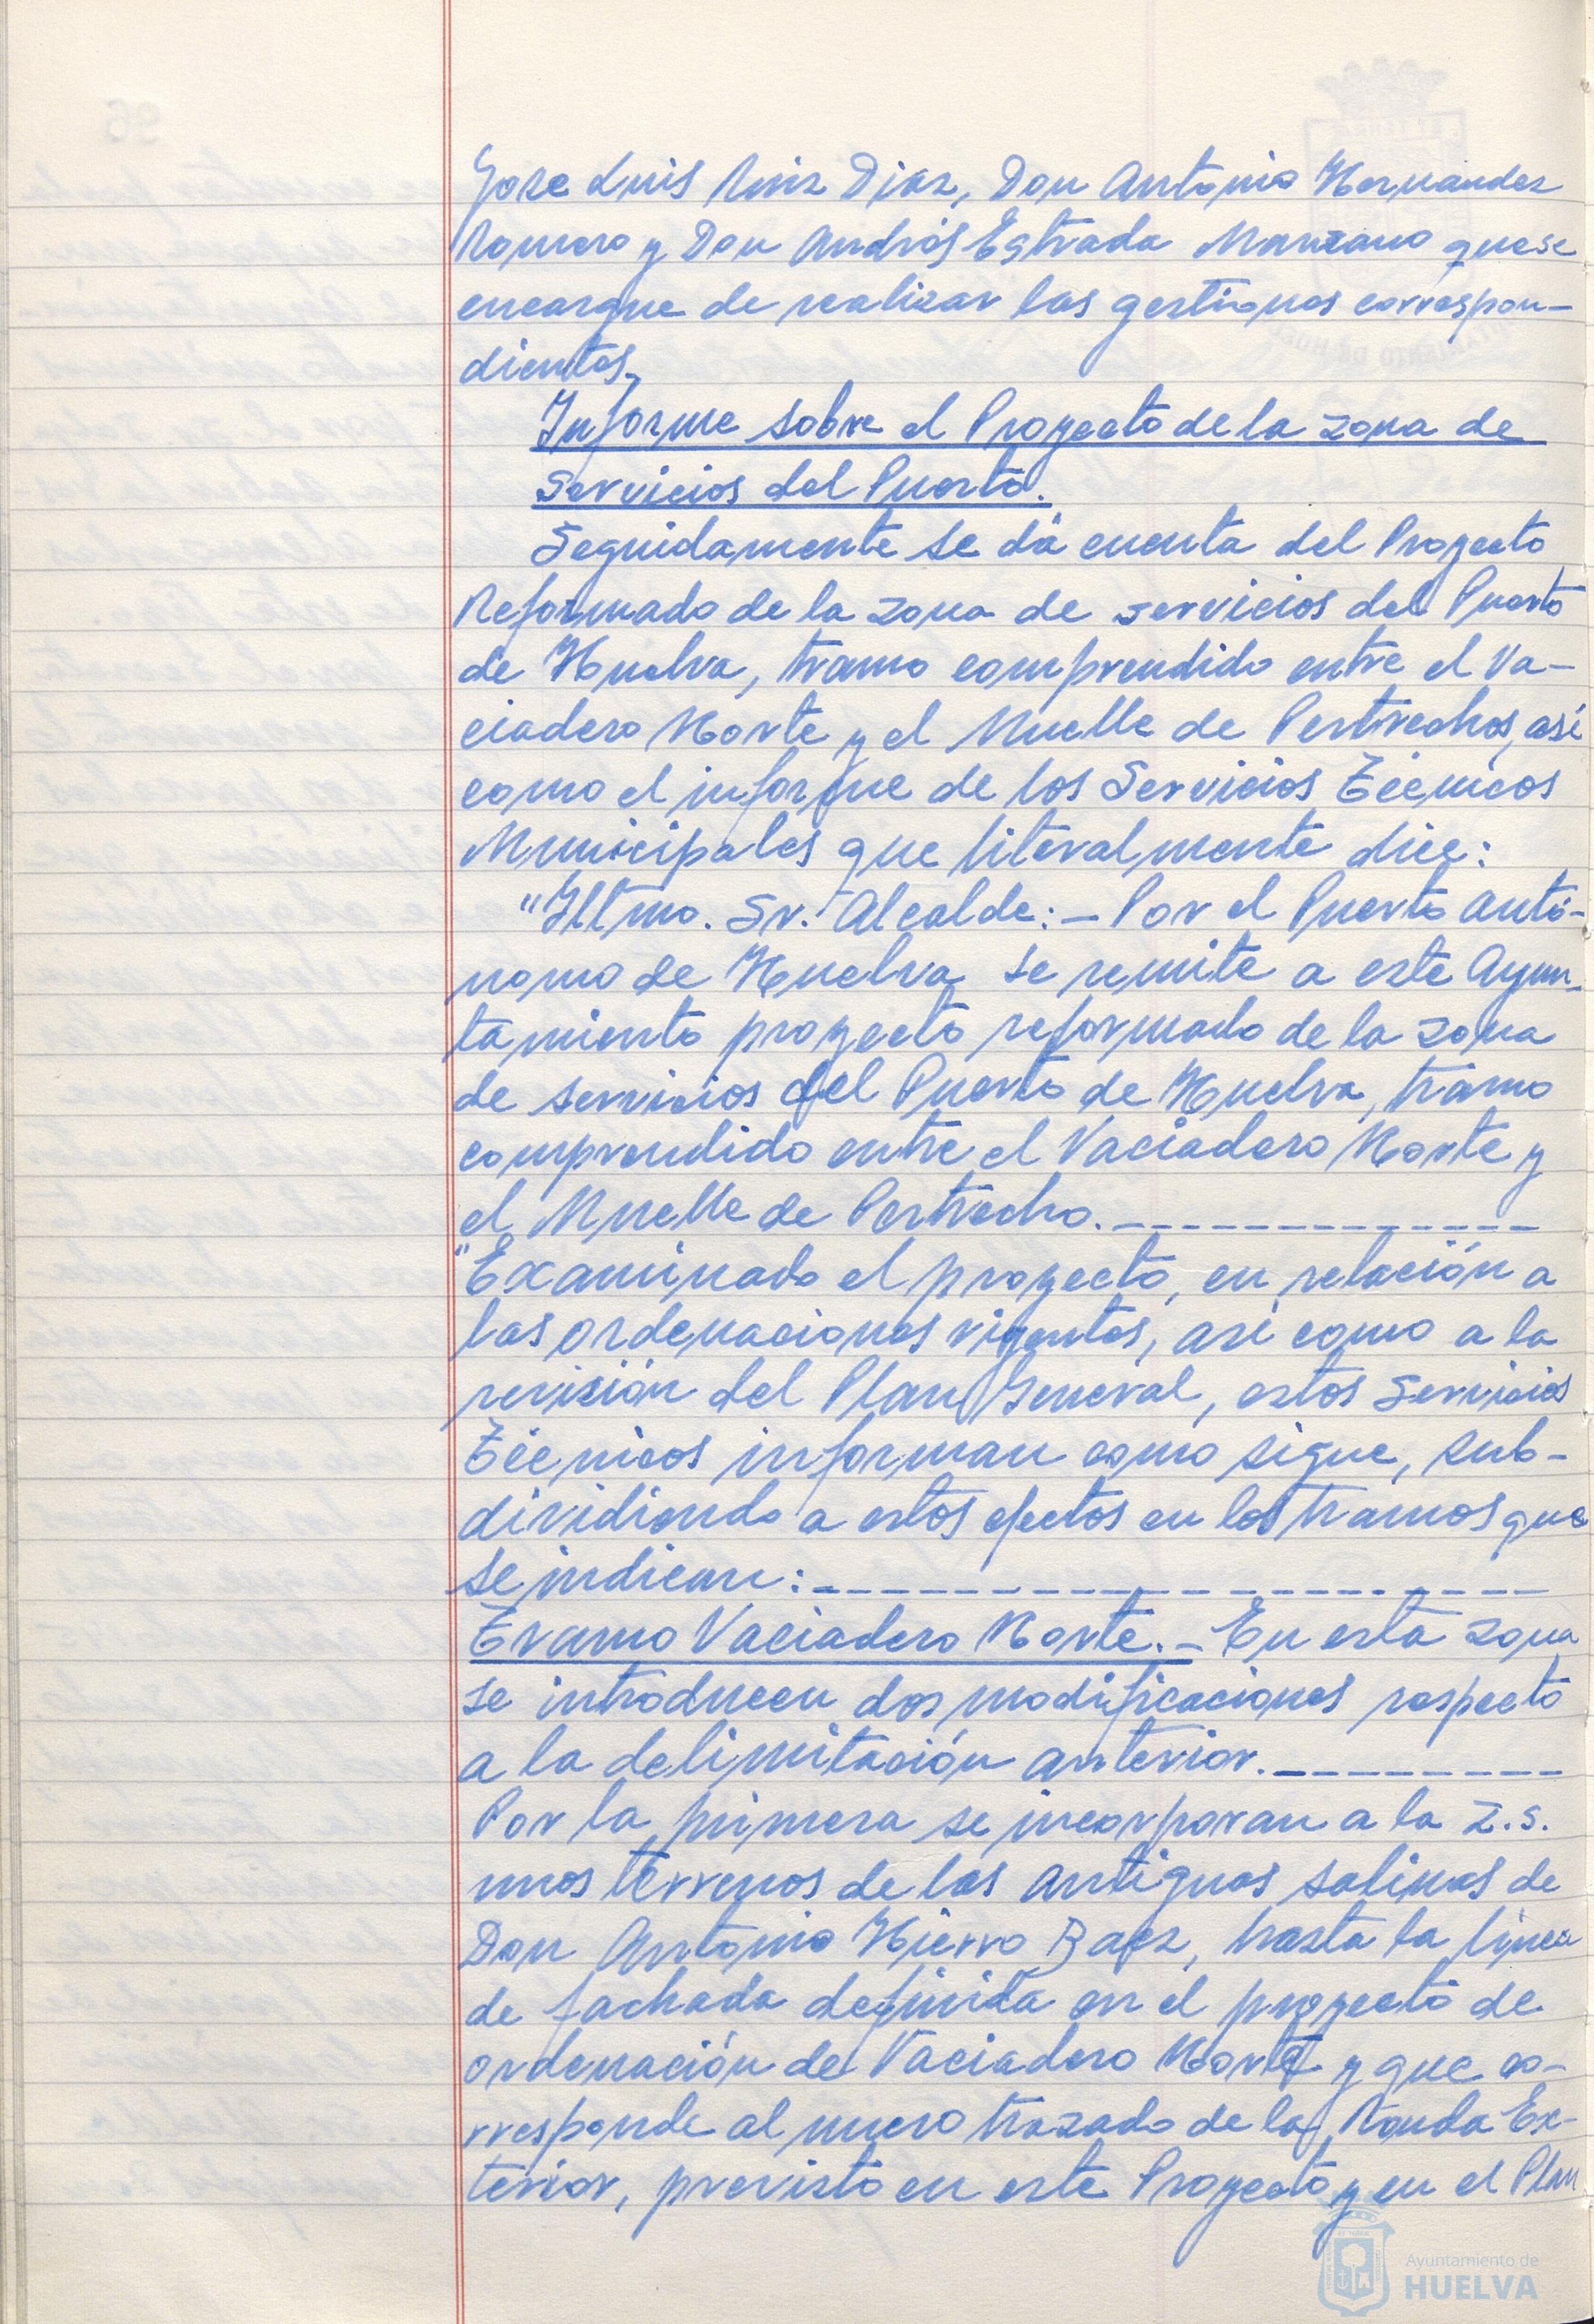 Jose Luis Ruiz Diaz, Don Antonio Hernandez
Romero y Don Andrés Estrada Manzano que se
encargue de realizar las gestiones correspon-
dientes.
Informe sobre el Proyecto de la zona de
Servicios del Puerto.
Seguidamente se dá cuenta del Proyecto
Reformado de la zona de servicios del Puerto
de Huelva, tramo comprendido entre el Va-
ciadero Norte y el Muelle de Pertrechos, asi
como el informe de los Servicios Técnicos
Municipales que literalmente dice:
"Iltmo. Sr. Alcalde:- Por el Puerto Autó-
nomo de Huelva se remite a este Ayun-
tamiento proyecto reformado de la zona
de servicios del Puerto de Huelva, tramo
comprendido entre el Vaciadero Norte y
el Muelle de Pertrecho.-------------
"Examinado el proyecto, en relación a
las ordenaciones vigentes, asi como a la
revisión del Plan General, estos Servicios
Técnicos informan como sigue, sub-
dividiendo a estos efectos en los tramos que
se indican:--------------------
Tramo Vaciadero Norte.- En esta zona
se introducen dos modificaciones respecto
a la delimitación anterior.---------
Por la primera se incorporan a la Z.S.
unos terrenos de las antiguas salinas de
Don Antonio Hierro Baez, hasta la línea
de fachada definida en el proyecto de
ordenación de Vaciadero Norte y que co-
rresponde al nuevo trazado de la Ronda Ex-
terior, previsto en este Proyecto y en el Plan
Ayuntamiento de
HUELVA